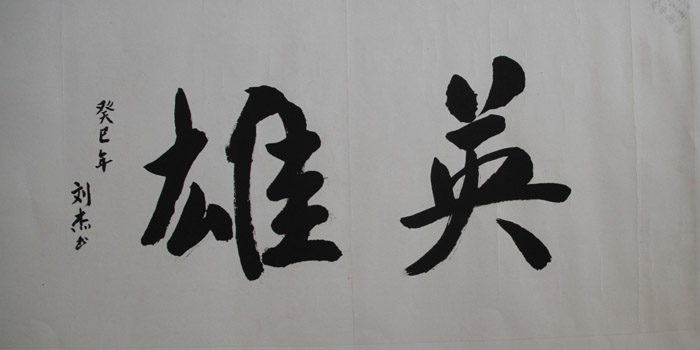 英雄
癸巳年
刘杰书